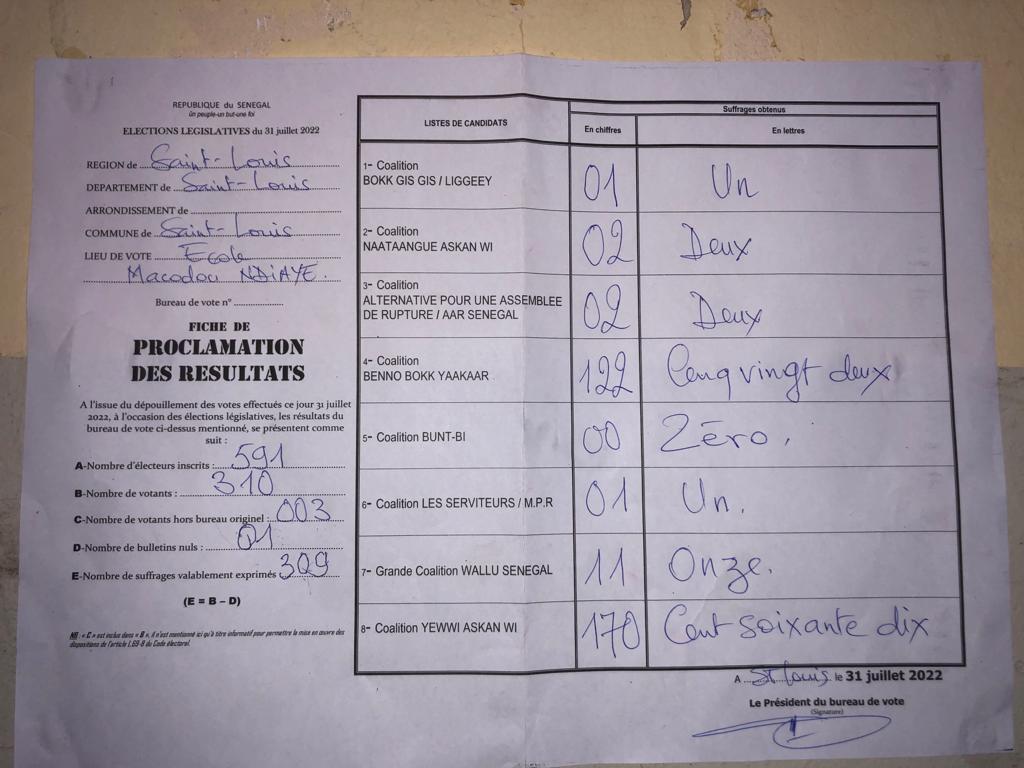 REPUBLIQUE du SENEGAL
Un peuple-un but-une foi
ELECTIONS LEGISLATIVES du 31 juillet 2022
REGION de Saint-Louis
DEPARTEMENT de Saint-Louis
ARRONDISSEMENT de
COMMUNE de Saint-Louis
LIEU DE VOTE Ecole
Macodou NDIAYE.
Bureau de vote n°
FICHE DE
PROCLAMATION
DES RESULTATS
A l'issue du dépouillement des votes effectués ce jour 31 juillet
2022, à l'occasion des élections législatives, les résultats du
bureau de vote ci-dessus mentionné, se présentent comme
suit :
A-Nombre d'électeurs inscrits : 591
B-Nombre de votants : 310
C-Nombre de votants hors bureau originel : 003
D-Nombre de bulletins nuls : 01
E-Nombre de suffrages valablement exprimés 309
(E = B – D)
NB : « C » est inclus dans « B », il n'est mentionné ici qu'à titre informatif pour permettre la mise en œuvre des
dispositions de l'article L.69-8 du Code électoral.
LISTES DE CANDIDATS
Suffrages obtenus
En chiffres En lettres
1- Coalition
BOKK GIS GIS / LIGGEEY 01 Un
2- Coalition
NAATAANGUE ASKAN WI 02 Deux
3- Coalition
ALTERNATIVE POUR UNE ASSEMBLEE
DE RUPTURE / AAR SENEGAL 02 Deux
4- Coalition
BENNO BOKK YAAKAAR 122 Cenq vingt deux
5- Coalition BUNT-BI 00 Zéro.
6- Coalition LES SERVITEURS / M.P.R 01 Un.
7- Grande Coalition WALLU SENEGAL 11 Onze.
8- Coalition YEWWI ASKAN WI 170 Cent soixante dix
A St Louis le 31 juillet 2022
Le Président du bureau de vote
(Signature)